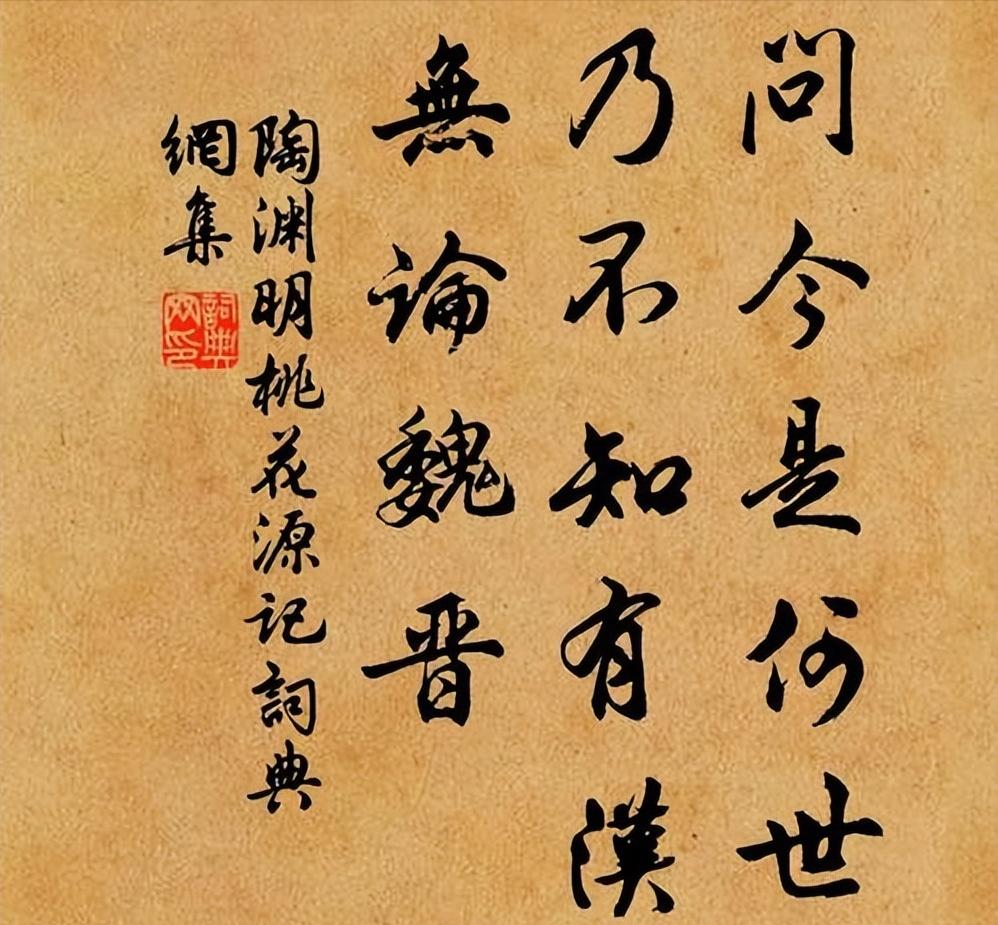 問今是何世
乃不知有漢
無論魏晋
陶渊明桃花源记詞典
網集
詞典
网印